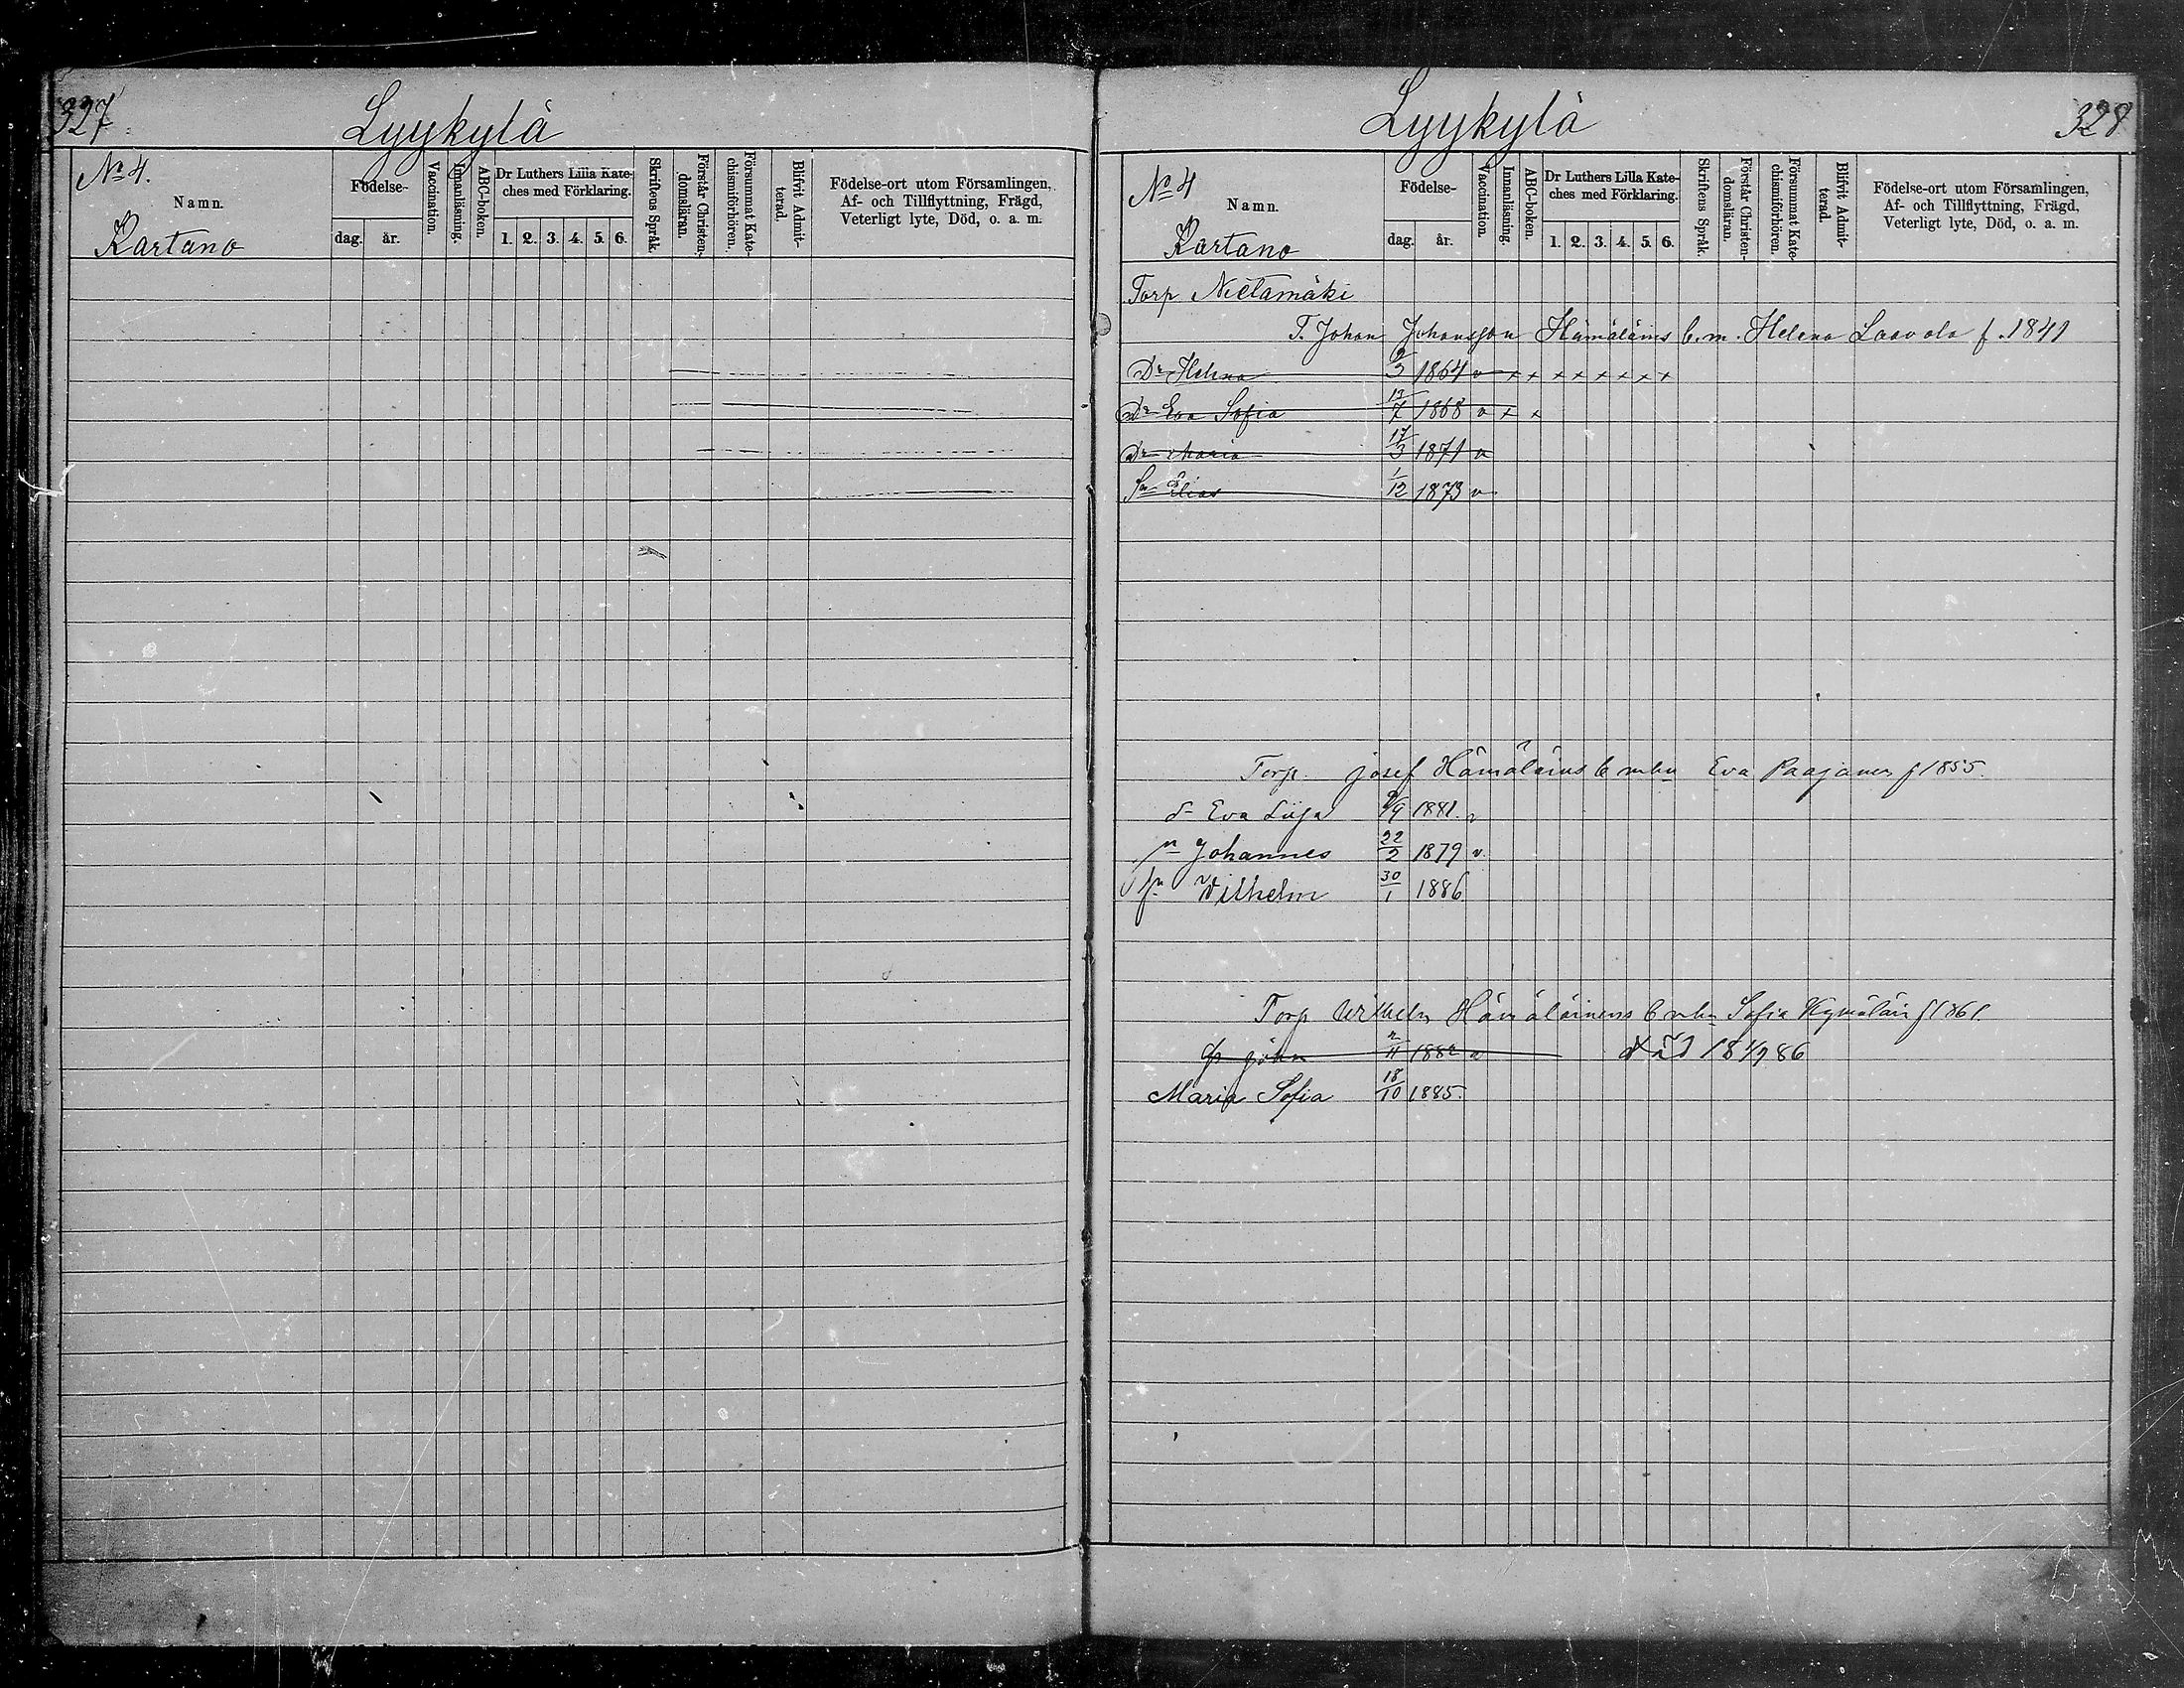 327
Lyykylä
No 4.
Namn.
Kartano
Födelse-
dag. år.
Vaccination.
Innanläsning.
ABC-boken.
Dr Luthers Lilla Kate-
ches med Förklaring.
1. 2. 3. 4. 5. 6.
Skriftens Språk.
Förstår Christen-
domsläran.
Försummat Kate-
chismiförhören.
Blifvit Admit-
terad.
Födelse-ort utom Församlingen,
Af- och Tillflyttning, Frägd,
Veterligt lyte, Död, o. a. m.
Lyykylä
328
No 4
Namn.
Kartano
Födelse-
dag. år.
Vaccination.
Innanläsning.
ABC-boken.
Dr Luthers Lilla Kate-
ches med Förklaring.
1. 2. 3. 4. 5. 6.
Skriftens Språk.
Förstår Christen-
domsläran.
Försummat Kate-
chismiförhören.
Blifvit Admit-
terad.
Födelse-ort utom Församlingen,
Af- och Tillflyttning, Frägd,
Veterligt lyte, Död, o. a. m.
Torp Nietamäki
T. Johan Johansson Hämäläins b. m. Helena Laavola f. 1841
Dr Helena 1864 v x x x x x x x x
Dr Eva Sofia 1868 v x x
Dr Maria 17/3 1871 v
Sn Elias 1/12 1873 v
Torp. Josef Hämäläins b m hu Eva Paajanen f 1855.
d- Eva Liisa 1881. v
Johannes 22/2 1879 v.
Vilhelm 30/1 1886
Torp Vilhelm Hämäläinens b m hu Sofia f 1861.
John 1882 v död 86
Maria Sofia 18/10 1885.